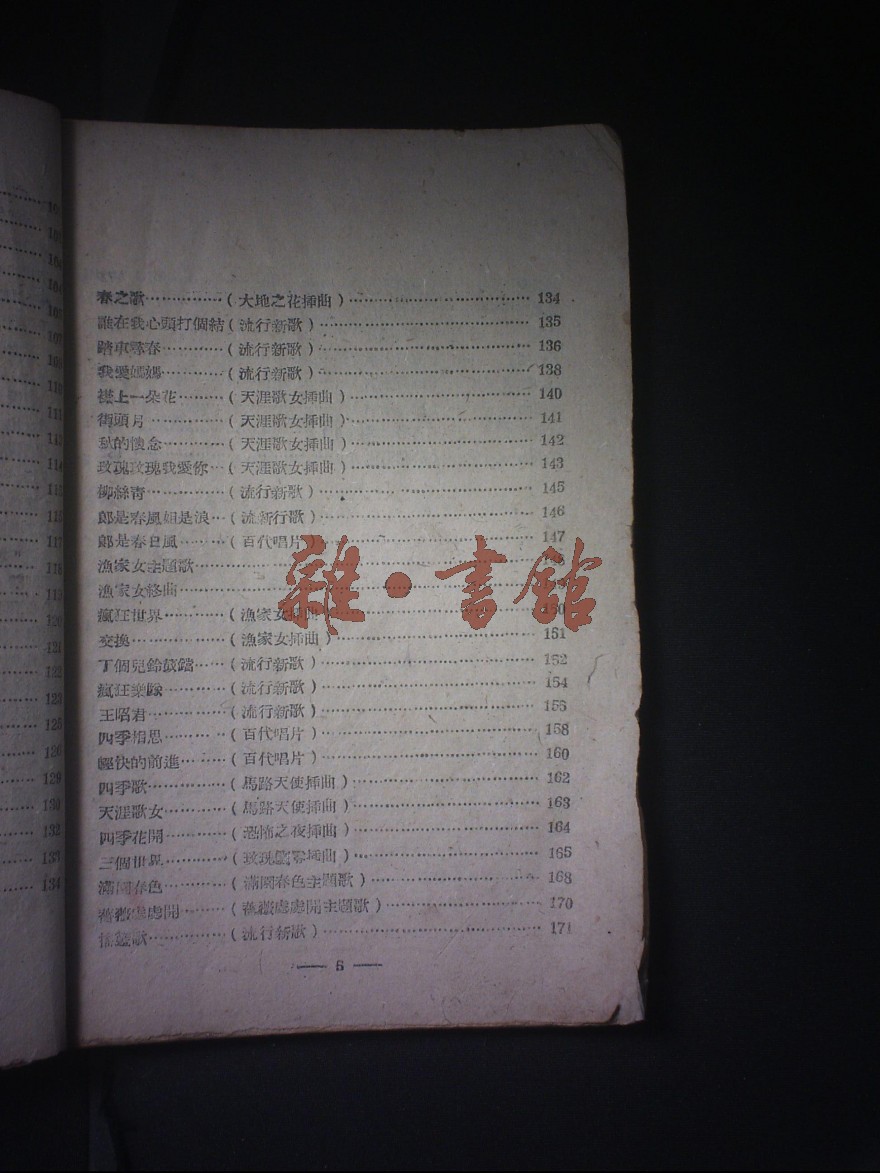 春之歌·············(大地之花揷曲)······························134
誰在我心頭打個結(流行新歌)·································135
踏車尋春··········(流行新歌)·································136
我愛媽媽··········(流行新歌)·································138
襟上一朵花········(天涯歌女揷曲)····························140
街頭月············(天涯歌女揷曲)····························141
的懷念··········(天涯歌女揷曲)····························142
玫瑰玫瑰我愛你···(天涯歌女揷曲)····························143
柳絲靑·············(流行新歌)·································145
郎是春風姐是浪···(流新行歌)·································146
郎是春日風········(百代唱片)·································147
漁家女主題歌
漁家女終曲
瘋狂世界··········(漁家女揷曲)·······························150
交換···············(漁家女揷曲)·······························151
丁個兒鈴鼓鐺·····(流行新歌)·································152
瘋狂樂隊··········(流行新歌)·································154
王昭君·············(流行新歌)·································156
四季相思··········(百代唱片)·································158
輕快的前進········(百代唱片)·································160
四季歌·············(馬路天使揷曲)····························162
天涯歌女··········(馬路天使揷曲)····························163
四季花開··········(恐怖之夜揷曲)····························164
三個世界··········(玫瑰飄零揷曲)····························165
滿園春色··········(滿園春色主題歌)·························168
薔薇處處開········(薔薇處處開主題歌)······················170
歌·············(流行新歌)·································171
— 5 —
103
104
104
105
107
109
110
111
113
114
115
116
117
118
119
120
121
122
123
125
126
129
130
132
133
134
雜·書館